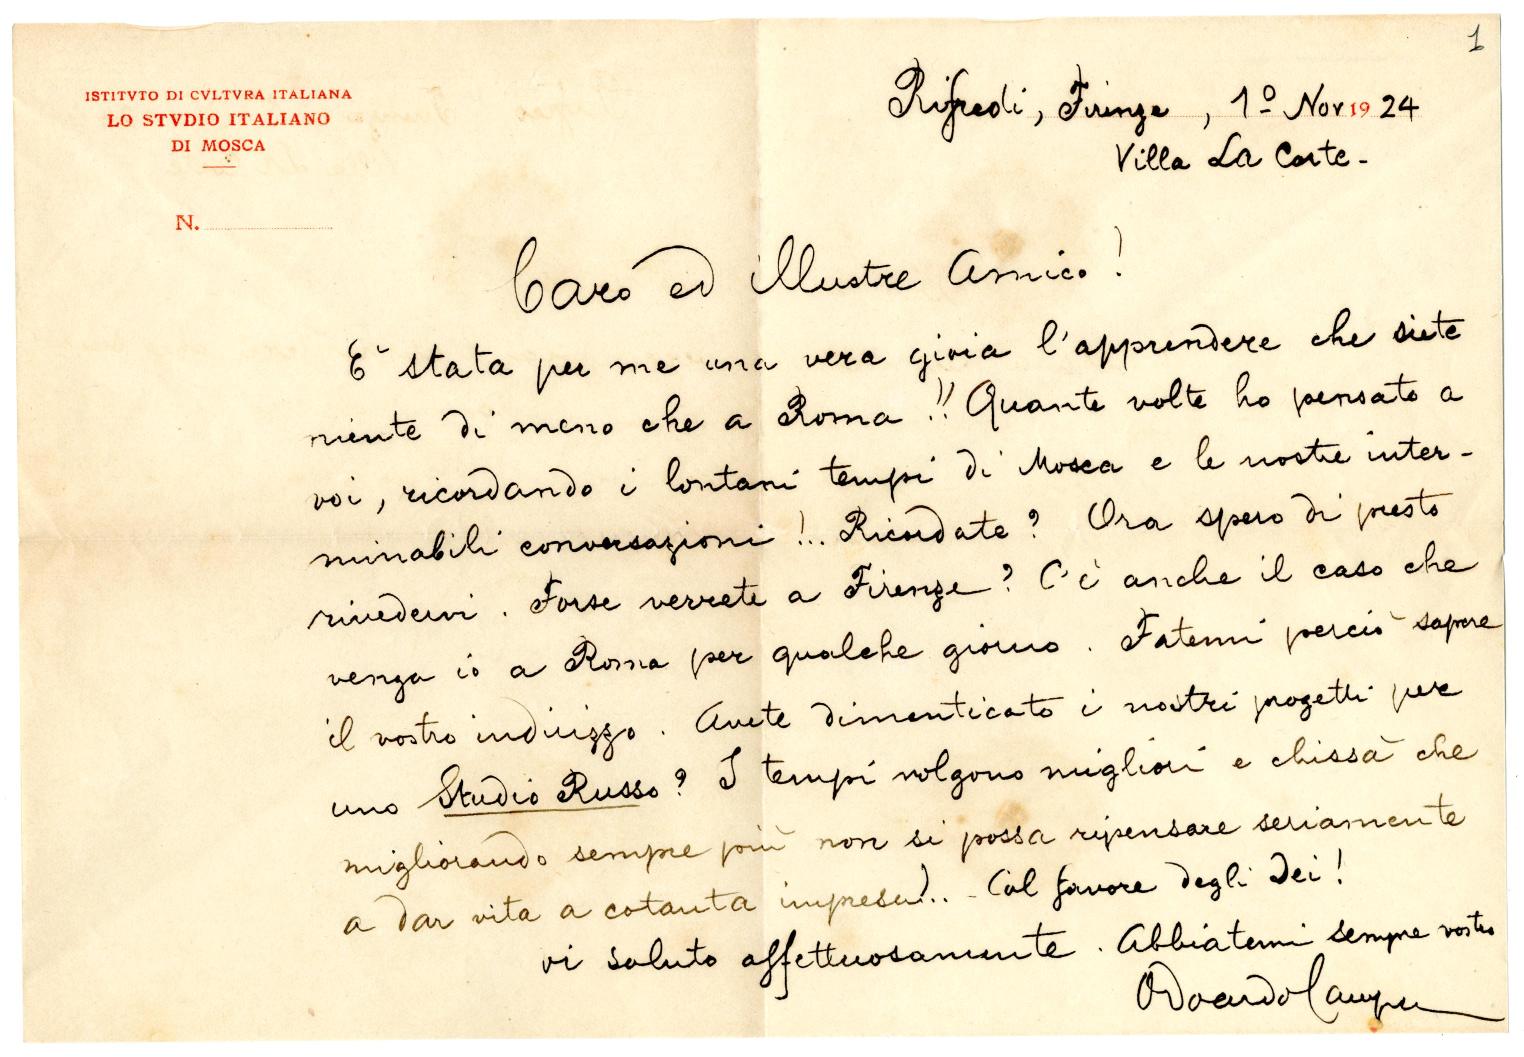 1
ISTITVTO DI CVLTVRA ITALIANA
LO STVDIO ITALIANO
DI MOSCA
N.
Rifredi, Firenze, 1º Nov 1924
Villa La Corte -
Caro ed illustre Amico!
E' stata per me una vera gioia l'apprendere che siete
niente di meno che a Roma!! Quante volte ho pensato a
voi, ricordando i lontani tempi di Mosca e le nostre inter-
minabili conversazioni!.. Ricordate? Ora spero di presto
rivedervi. Forse verrete a Firenze? C'è anche il caso che
venga io a Roma per qualche giorno. Fatemi perciò sapere
il vostro indirizzo. Avete dimenticato i nostri progetti per
uno Studio Russo? I tempi volgono migliori e chissà che
migliorando sempre più non si possa ripensare seriamente
a dar vita a cotanta impresa!.. - Col favore degli Dei!
vi saluto affettuosamente. Abbiatemi sempre vostro
Odoardo Campa